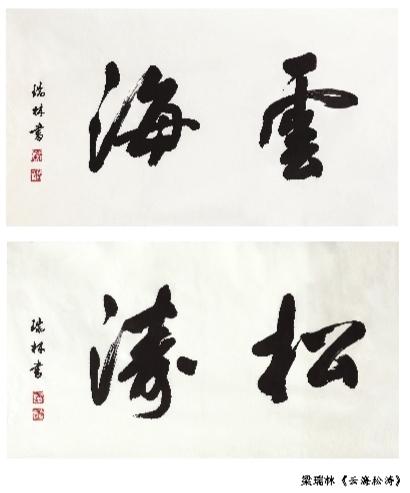 雲海
瑞林書
松濤
瑞林書
梁瑞林《云海松涛》